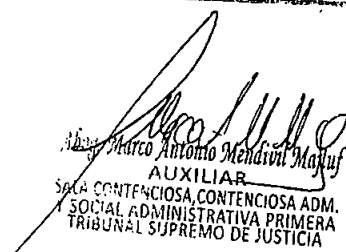 Abog. Marco Antonio Mendivil Majluf
AUXILIAR
SALA CONTENCIOSA, CONTENCIOSA ADM.
Y SOCIAL ADMINISTRATIVA PRIMERA
TRIBUNAL SUPREMO DE JUSTICIA